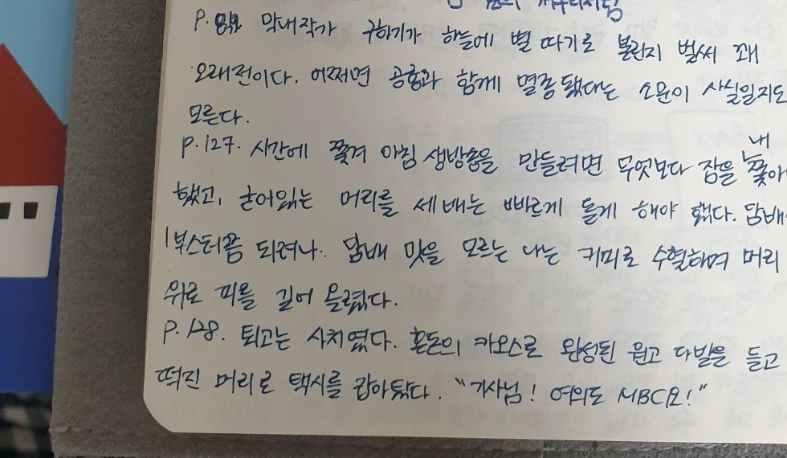 막내작가 구하기가 하늘에 별 따기로 불린지 벌써 꽤
오래전이다. 어쩌면 공룡과 함께 멸종됐다는 소문이 사실일지도
모른다.
P.127. 시간에 쫓겨 아침 생방송을 만들려면 무엇보다 잠을 내쫓아야
했고, 굳어있는 머리를 세 배는 빠르게 돌게 해야 했다. 담배
부스터쯤 되려나. 담배 맛을 모르는 나는 커피로 수혈하며 머리
위로 피를 길어 올렸다.
P.128. 퇴고는 사치였다. 혼돈의 카오스로 완성된 원고 다발을 들고
떡진 머리로 택시를 잡아탔다. "기사님! 여의도 MBC요!"